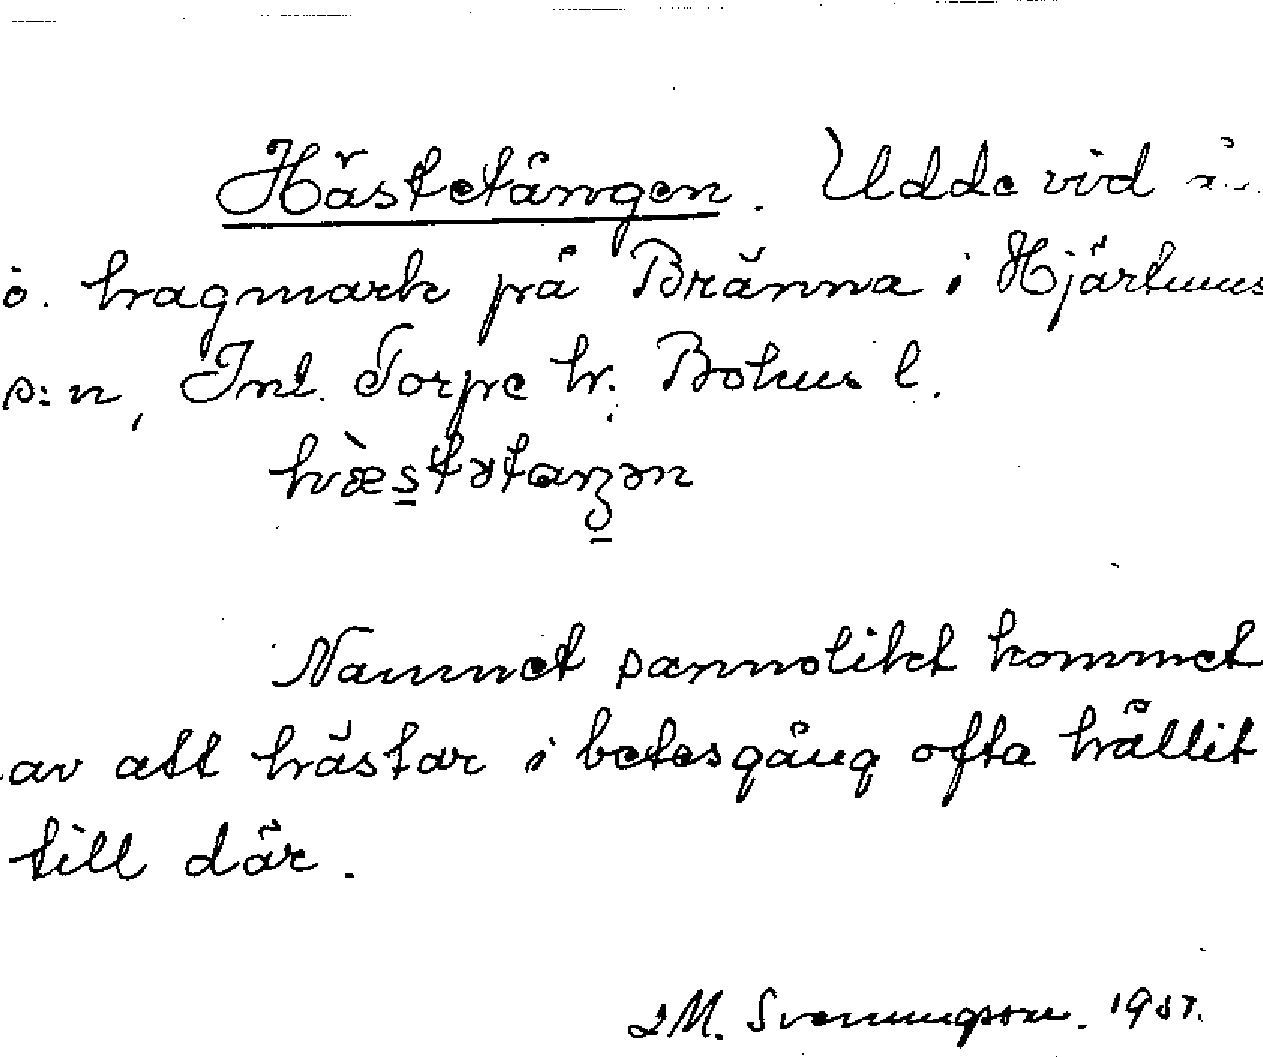 Hästetången. Udde vid
ö. hagmark på Bränna i Hjärtums
s:n, Inl. Torpe hr. Bohus l.
Namnet sannolikt kommet
av att hästar i betesgång ofta hållit
till där.
M. Svenungsson.